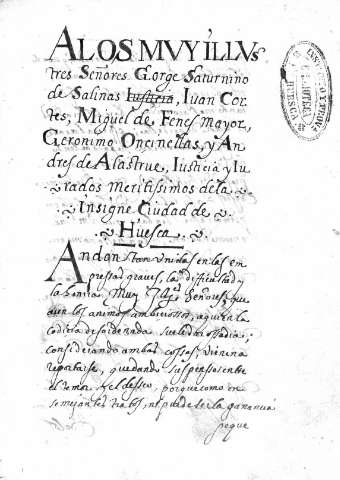 A LOS MVY ILLVS
tres Señores Gorge Saturnino
de Salinas Iusticia, Iuan Cor
tes, Miguel de Fenes mayor,
Geronimo Oncinellas, y An
dres de Alastrue, Iusticia y Iu
rados meritissimos de la
Insigne Ciudad de
Huesca
Andan tan vnidas en las em
pressas graues, la difficultad y
la honrra Muy Illes Señores, que
aun los animos ambiciosos, a quien la
codicia desordenada suele dar osadia,
considerando ambas cossas, vienen a
repararse, quedando suspensos entre
el temor y el desseo, porque como en
semejantes tratos, no puede ser la ganancia
peque